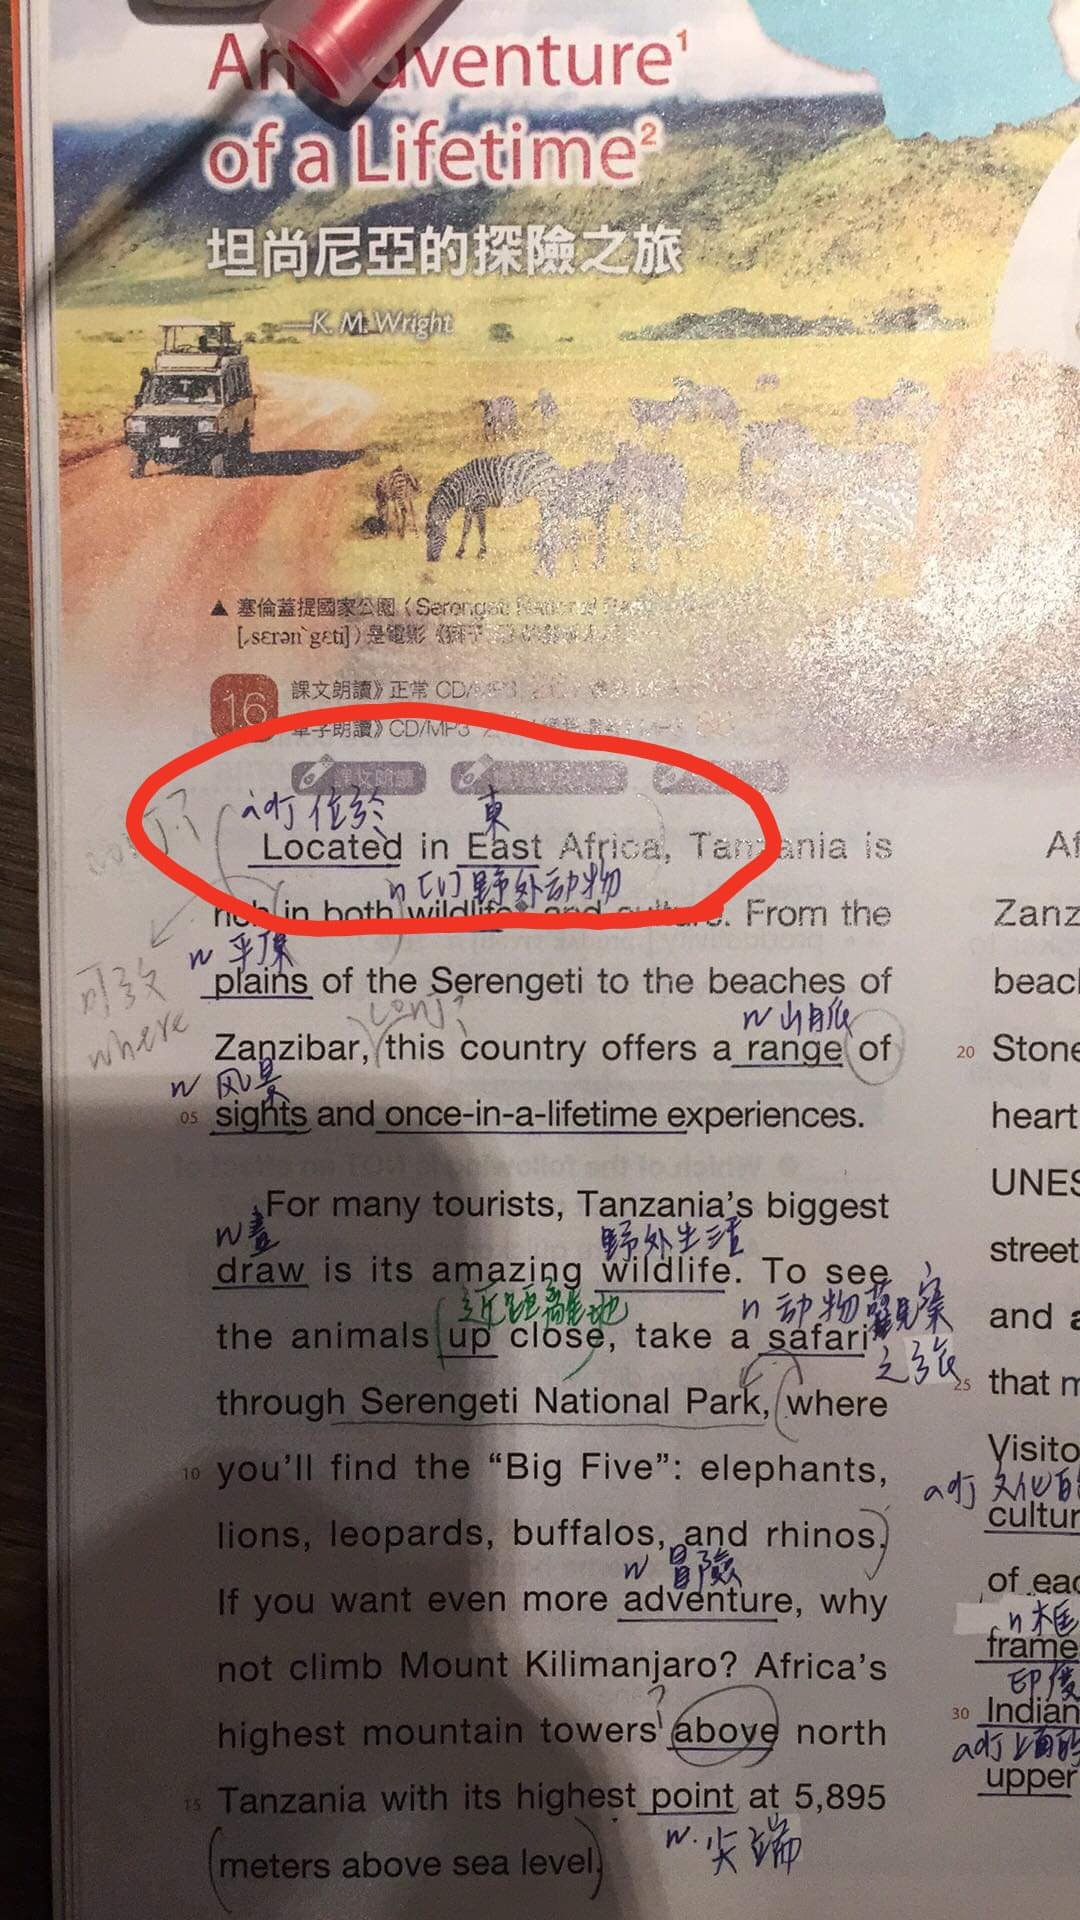 An Adventure¹
of a Lifetime²
坦尚尼亞的探險之旅
—K. M. Wright
▲ 塞倫蓋提國家公園（Serengeti National
[ˌsɛrənˋgɛti]）是電影
16
課文朗讀》正常 CD/MP3
單字朗讀》CD/MP3
課文朗讀
adj 位於 東
Located in East Africa, Tanzania is
n [U] 野外动物
rich in both wildlife and culture. From the
n 平原
plains of the Serengeti to the beaches of
可改
where
conj?
n 山脈
Zanzibar, this country offers a range of
n 风景
05 sights and once-in-a-lifetime experiences.
For many tourists, Tanzania's biggest
n 畫 野外生活
draw is its amazing wildlife. To see
近距離地 n 动物觀察
the animals up close, take a safari
之旅
through Serengeti National Park, where
10 you'll find the “Big Five”: elephants,
lions, leopards, buffalos, and rhinos.
n 冒險
If you want even more adventure, why
not climb Mount Kilimanjaro? Africa's
?
highest mountain towers above north
15 Tanzania with its highest point at 5,895
n. 尖端
meters above sea level.
Af
Zanz
beach
20 Stone
heart
UNES
street
and a
25 that m
Visito
adj 文化的
cultur
of eac
n 框
frame
印度
30 Indian
adj 上面的
upper